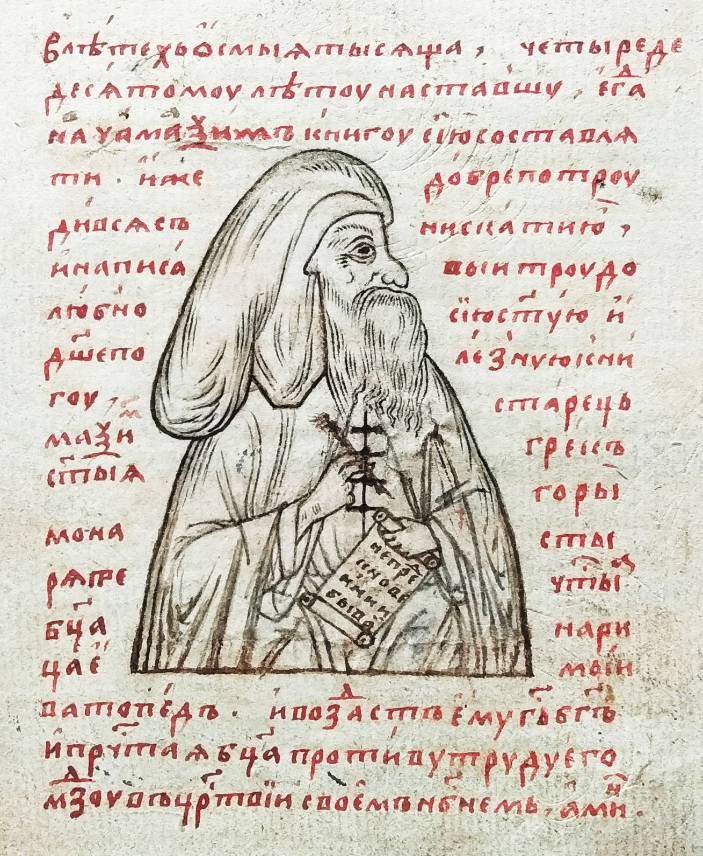 влѣтехъѡсмыꙗтысѧща , четыреде
десѧтомоу лѣтоу наставшу , егⷣа
начамаѯимъ книгоу сїюсоставлѧ
ти . иже добрепотроу
дивсѧсъ
инаписа выитроудо
любно сїюст҃ую и
дш҃епо лезнуюкни
гоу , старецъ
маѯиⷨ грекъ
ст҃ыѧ горы
мона сты
рѧпре чт҃ы
бц҃а нари
цае моїи
непре
ватопедъ . ивозⷣастъ ему гь҃бг҃ъ
ипрч҃таѧ бц҃а противутрудуего
мзⷣоу въцр҃твїи своемънб҃немь . амиⷩ .